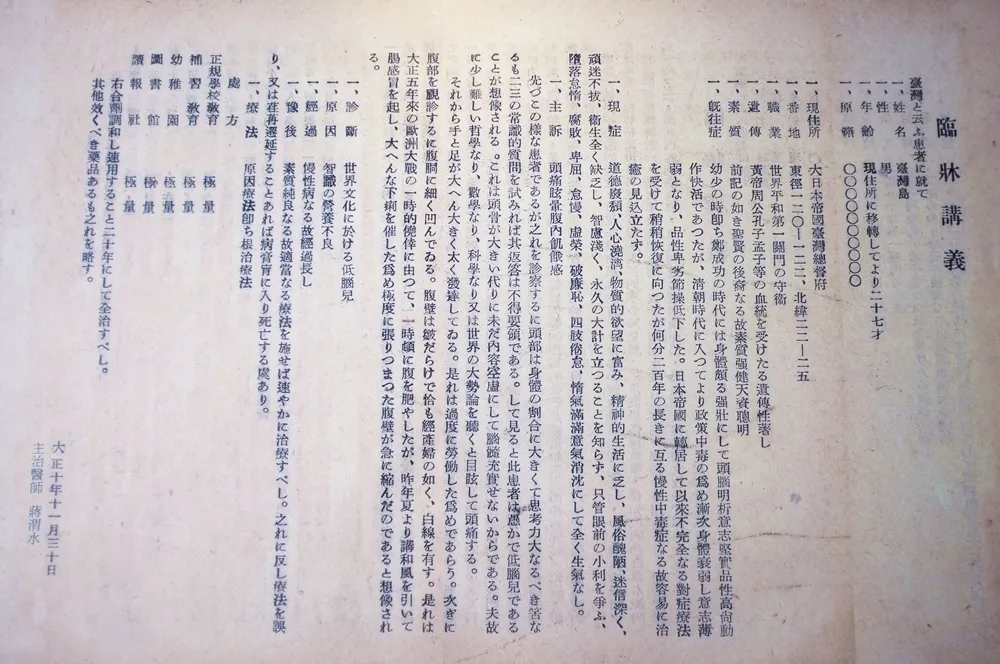 臨牀講義
臺灣と云ふ患者に就て
一、姓名　臺灣島
一、性　男
一、年齡　現住所に移轉してより二十七才
一、原籍　〇〇〇〇〇〇〇〇
一、現住所　大日本帝國臺灣總督府
一、番地　東經一二〇—一二二、北緯二二—二五
一、職業　世界平和第一關門の守衞
一、遺傳　黃帝周公孔子孟子等の血統を受けたる遺傳性著し
一、素質　前記の如き聖賢の後裔なる故素質强健天資聰明
一、旣往症　幼少の時卽ち鄭成功の時代には身體頗る强壯にして頭腦明析意志堅實品性高尙動
作快活であつたが、淸朝時代に入つてより政策中毒の爲め漸次身體衰弱し意志薄
弱となり、品性卑劣節操低下した。日本帝國に轉居して以來不完全なる對症療法
を受けて稍稍恢復に向つたが何分二百年の長きに亙る慢性中毒症なる故容易に治
癒の見込立たず。
一、現症　道德廢頽、人心澆漓、物質的欲望に富み、精神的生活に乏し、風俗醜陋、迷信深く、
頑迷不拔、衞生全く缺乏し、智慮淺く、永久の大計を立つることを知らず、只管眼前の小利を爭ふ、
墮落怠惰、腐敗、卑屈、怠慢、虛榮、破廉恥、四肢倦怠、惰氣滿滿意氣消沈にして全く生氣なし。
一、主訴　頭痛眩暈腹內飢餓感
先づこの樣な患者であるが之れを診察するに頭部は身體の割合に大きくて思考力大なるべき筈な
るも二三の常識的質問を試みれば其返答は不得要領である。して見ると此患者は愚かで低腦兒である
ことが想像される。これは頭骨が大きい代りに未だ內容空虛にして腦髓充實せないからである。夫故
に少し離しい哲學なり、數學なり、科學なり又は世界の大勢論を聽くと目眩して頭痛する。
それから手と足が大へん大きく太く發達してゐる。是れは過度に勞働した爲めであらう。次ぎに
腹部を觀診するに腹關に細く凹んでゐる。腹壁は皺だらけで恰も經產婦の如く、白線を有す。是れは
大正五年來の歐洲大戰の一時的僥倖に由つて、一時頓に腹を肥やしたが、昨年夏より講和風を引いて
腸感冒を起し、大へんな下痢を催した爲め極度に張りつまつた腹壁が急に縮んだのであると想像され
る。
一、診斷　世界文化に於ける低腦兒
一、原因　智識の營養不良
一、經過　慢性病なる故經過長し
一、豫後　素質純良なる故適當なる療法を施せば速やかに治療すべし。之れに反し療法を誤
り、又は荏苒遷延することあれば病膏肓に入り死亡する虞あり。
一、療法　原因療法卽ち根治療法
處方
正規學校敎育　極量
補習敎育　極量
幼稚園　極量
圖書館　極量
讀報社　極量
右合劑調和し連用すること二十年にして全治すべし。
其他效くべき藥品あるも之れを略す。
大正十年十一月三十日
主治醫師　蔣渭水